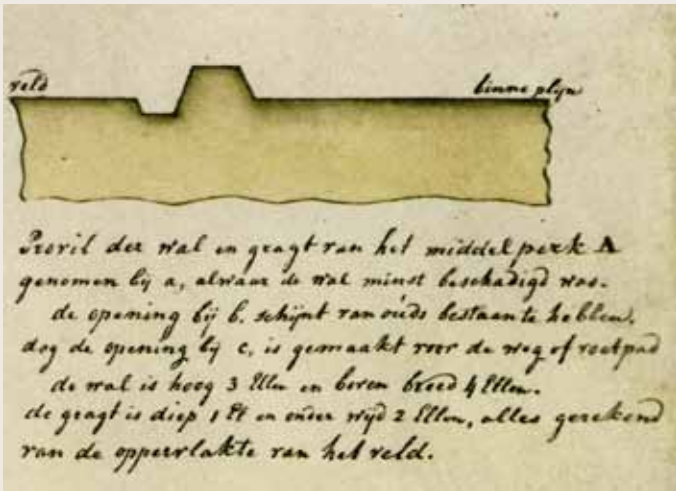 veld
binne plyn
Provil der wal en gragt van het middelperk A
genomen bij a, alwaar de wal minst beschadigd was.
de opening bij b. schijnt van oúds bestaan te hebben.
dog de opening bij c, is gemaakt voor de weg of voetpad
de wal is hoog 3 Ellen en boven breed 4 Ellen.
de gragt is diep 1 El en onder wijd 2 Ellen, alles gerekend
van de oppervlakte van het veld.